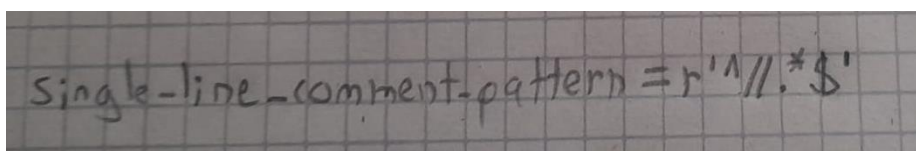 single_line_comment_pattern = r'^//.*$'